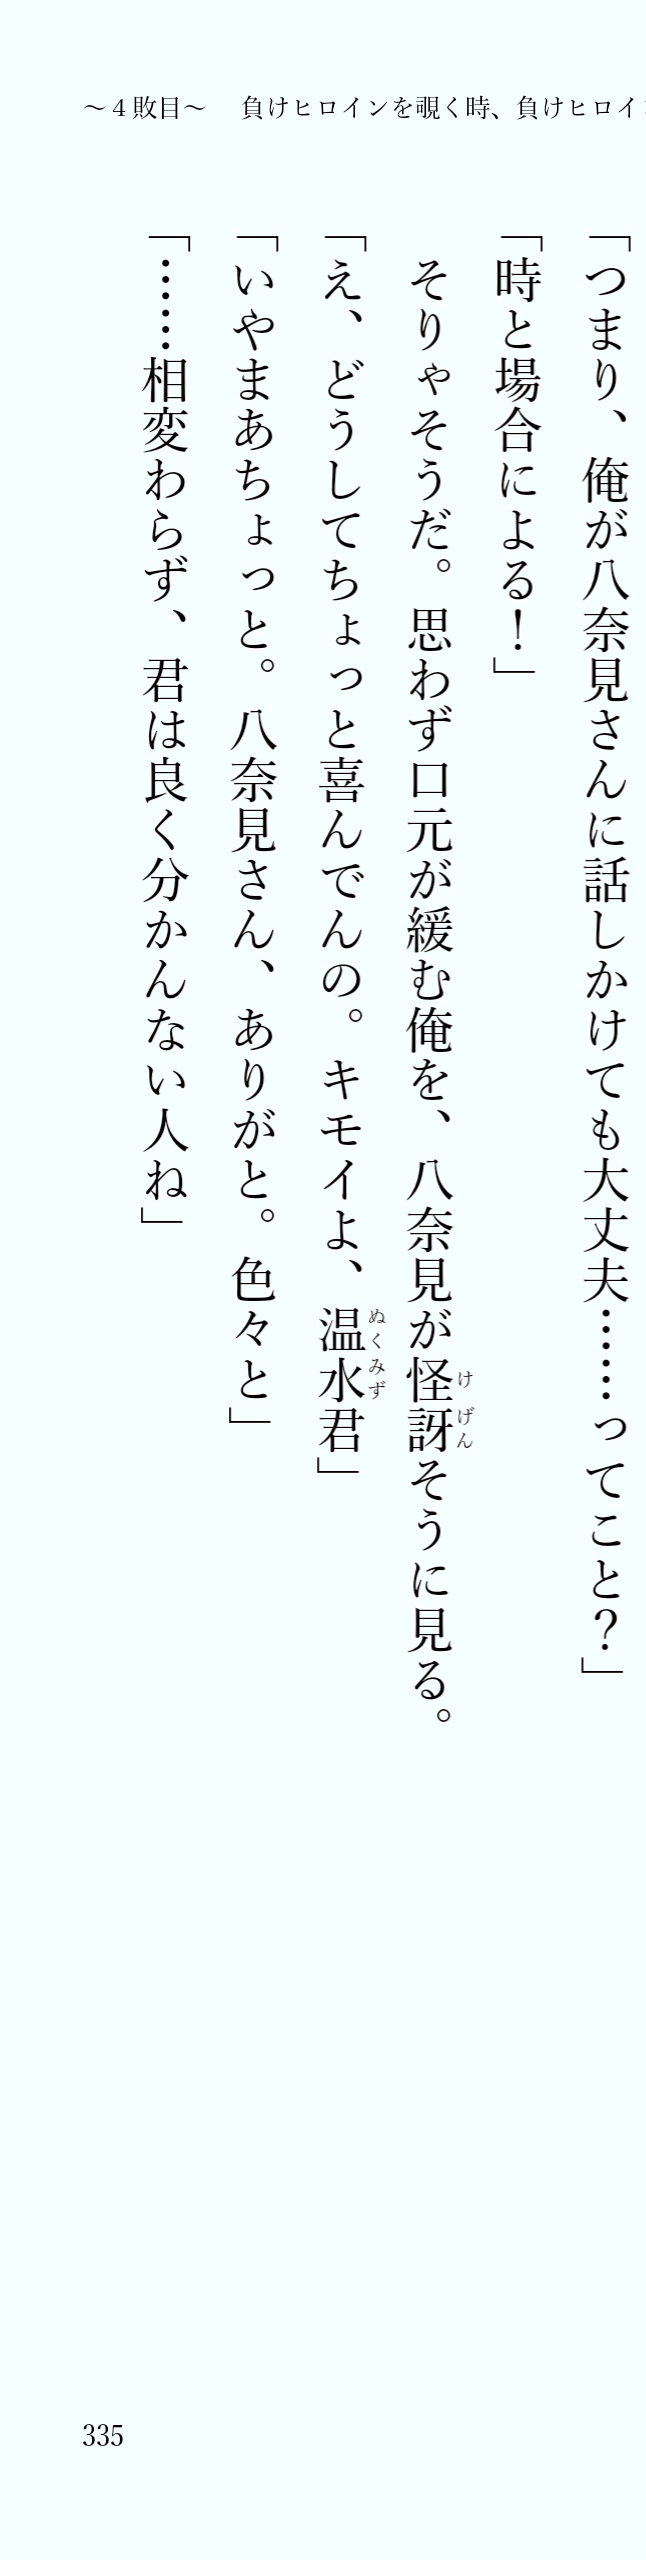 ～４敗目～　負けヒロインを覗く時、負けヒロイ
「つまり、俺が八奈見さんに話しかけても大丈夫……ってこと？」
「時と場合による！」
　そりゃそうだ。思わず口元が緩む俺を、八奈見が怪訝そうに見る。
けげん
「え、どうしてちょっと喜んでんの。キモイよ、温水君」
ぬくみず
「いやまあちょっと。八奈見さん、ありがと。色々と」
「……相変わらず、君は良く分かんない人ね」
335